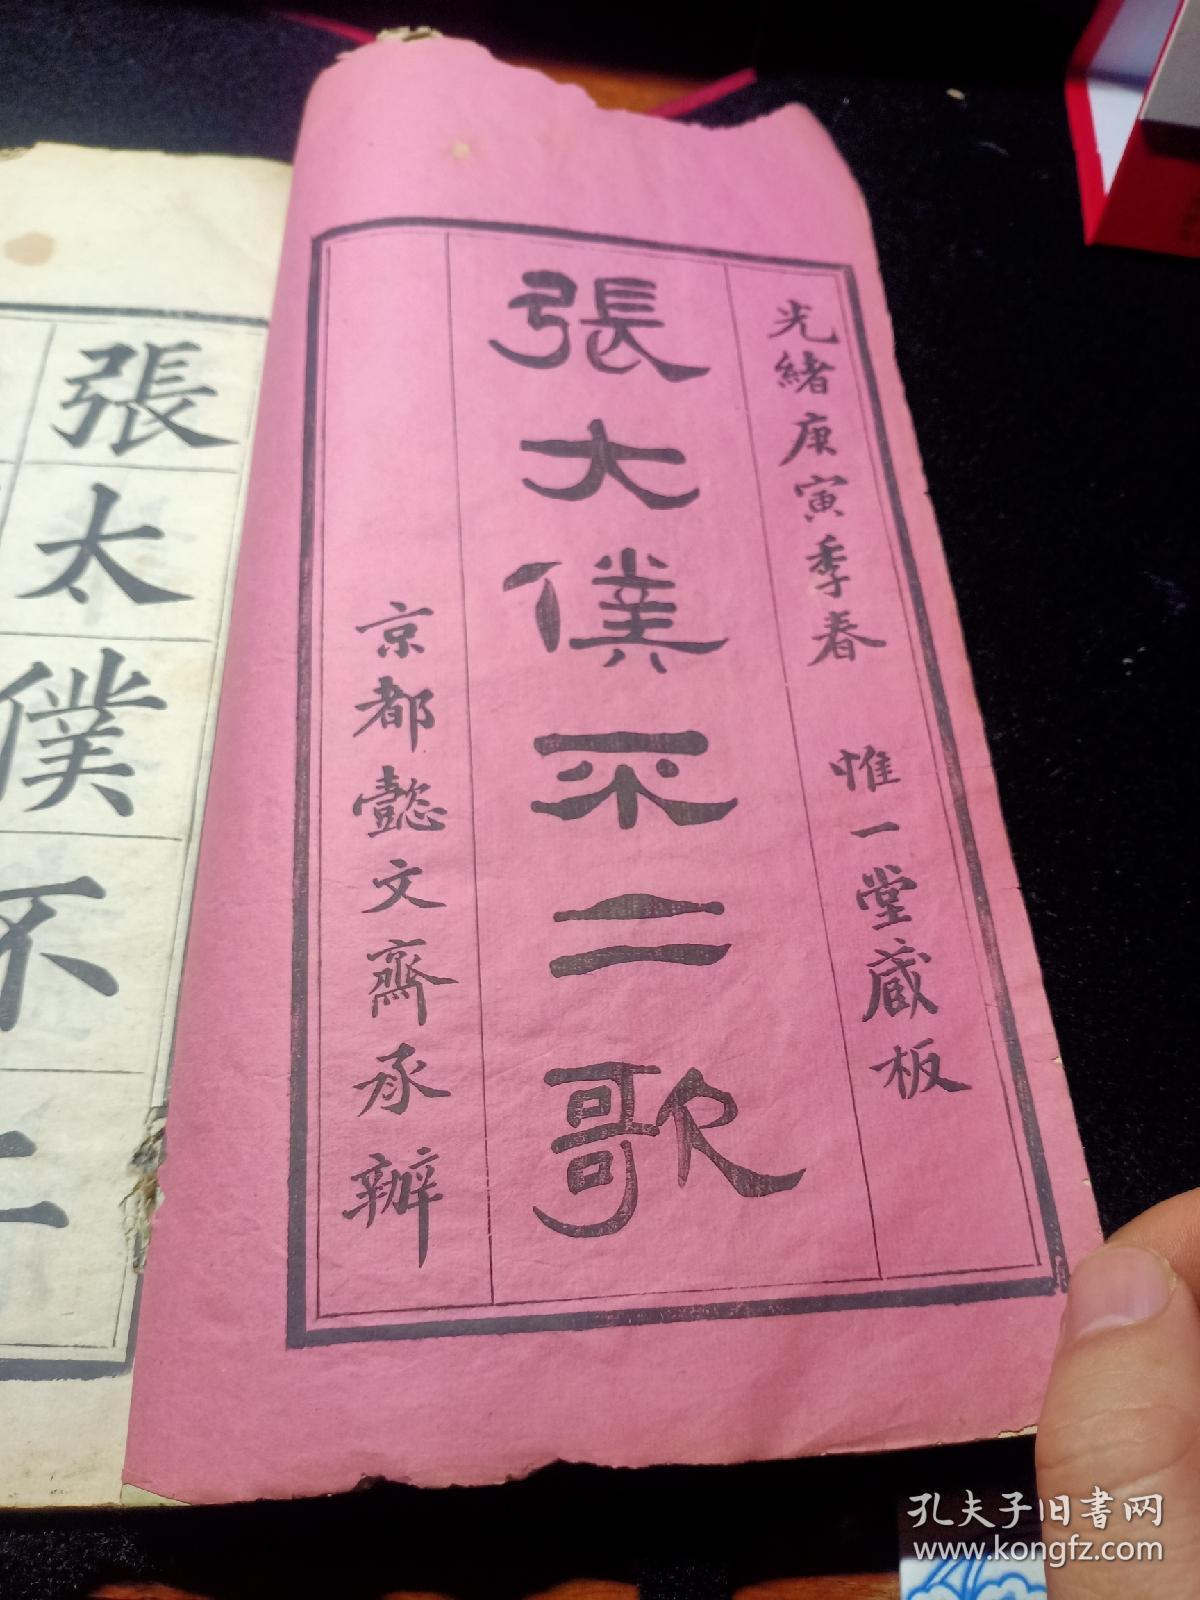 光緒庚寅季春 惟一堂藏板
張大僕不二歌
京都懿文齋承辦
張太僕不二
孔夫子旧书网
www.kongfz.com